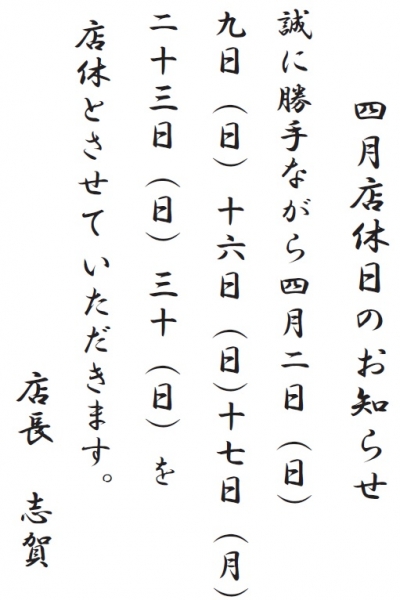 四月店休日のお知らせ
誠に勝手ながら四月二日(日)
九日(日)十六日(日)十七日(月)
二十三日(日)三十(日)を
店休とさせていただきます。
店長 志賀